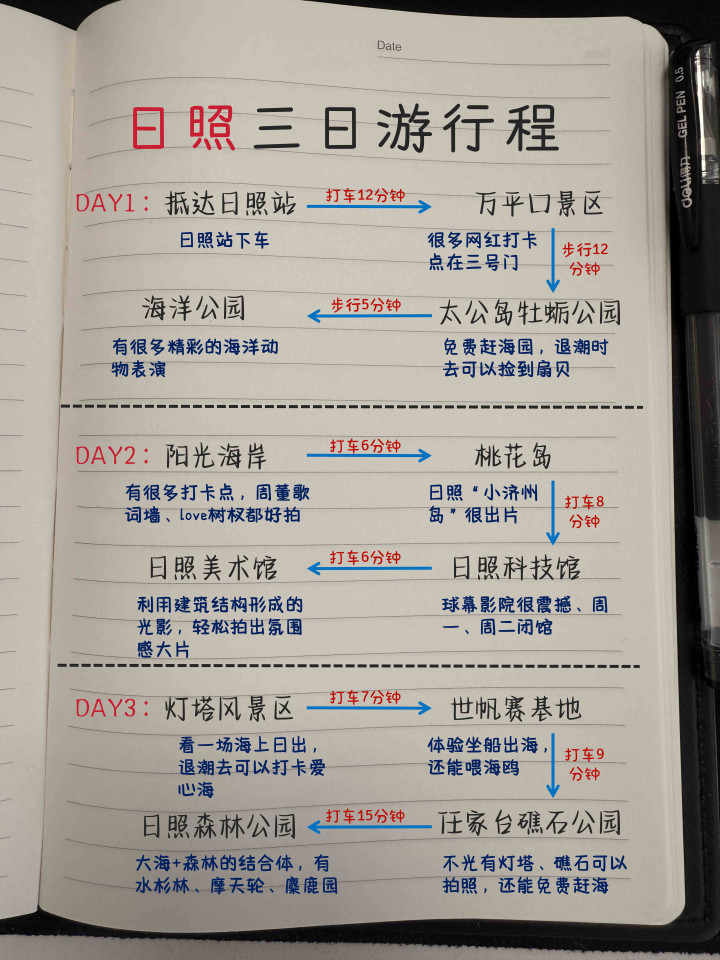 Date
日照三日游行程
DAY1：抵达日照站
打车12分钟
万平口景区
日照站下车
很多网红打卡
点在三号门
步行12
分钟
海洋公园
步行5分钟
太公岛牡蛎公园
有很多精彩的海洋动
物表演
免费赶海园，退潮时
去可以捡到扇贝
DAY2：阳光海岸
打车6分钟
桃花岛
有很多打卡点，周董歌
词墙、love树杈都好拍
日照“小济州
岛”很出片
打车8
分钟
日照美术馆
打车6分钟
日照科技馆
利用建筑结构形成的
光影，轻松拍出氛围
感大片
球幕影院很震撼、周
一、周二闭馆
DAY3：灯塔风景区
打车7分钟
世帆赛基地
看一场海上日出，
退潮去可以打卡爱
心海
体验坐船出海，
还能喂海鸥
打车9
分钟
日照森林公园
打车15分钟
任家台礁石公园
大海+森林的结合体，有
水杉林、摩天轮、麋鹿园
不光有灯塔、礁石可以
拍照，还能免费赶海
deli得力 GEL PEN 0.5